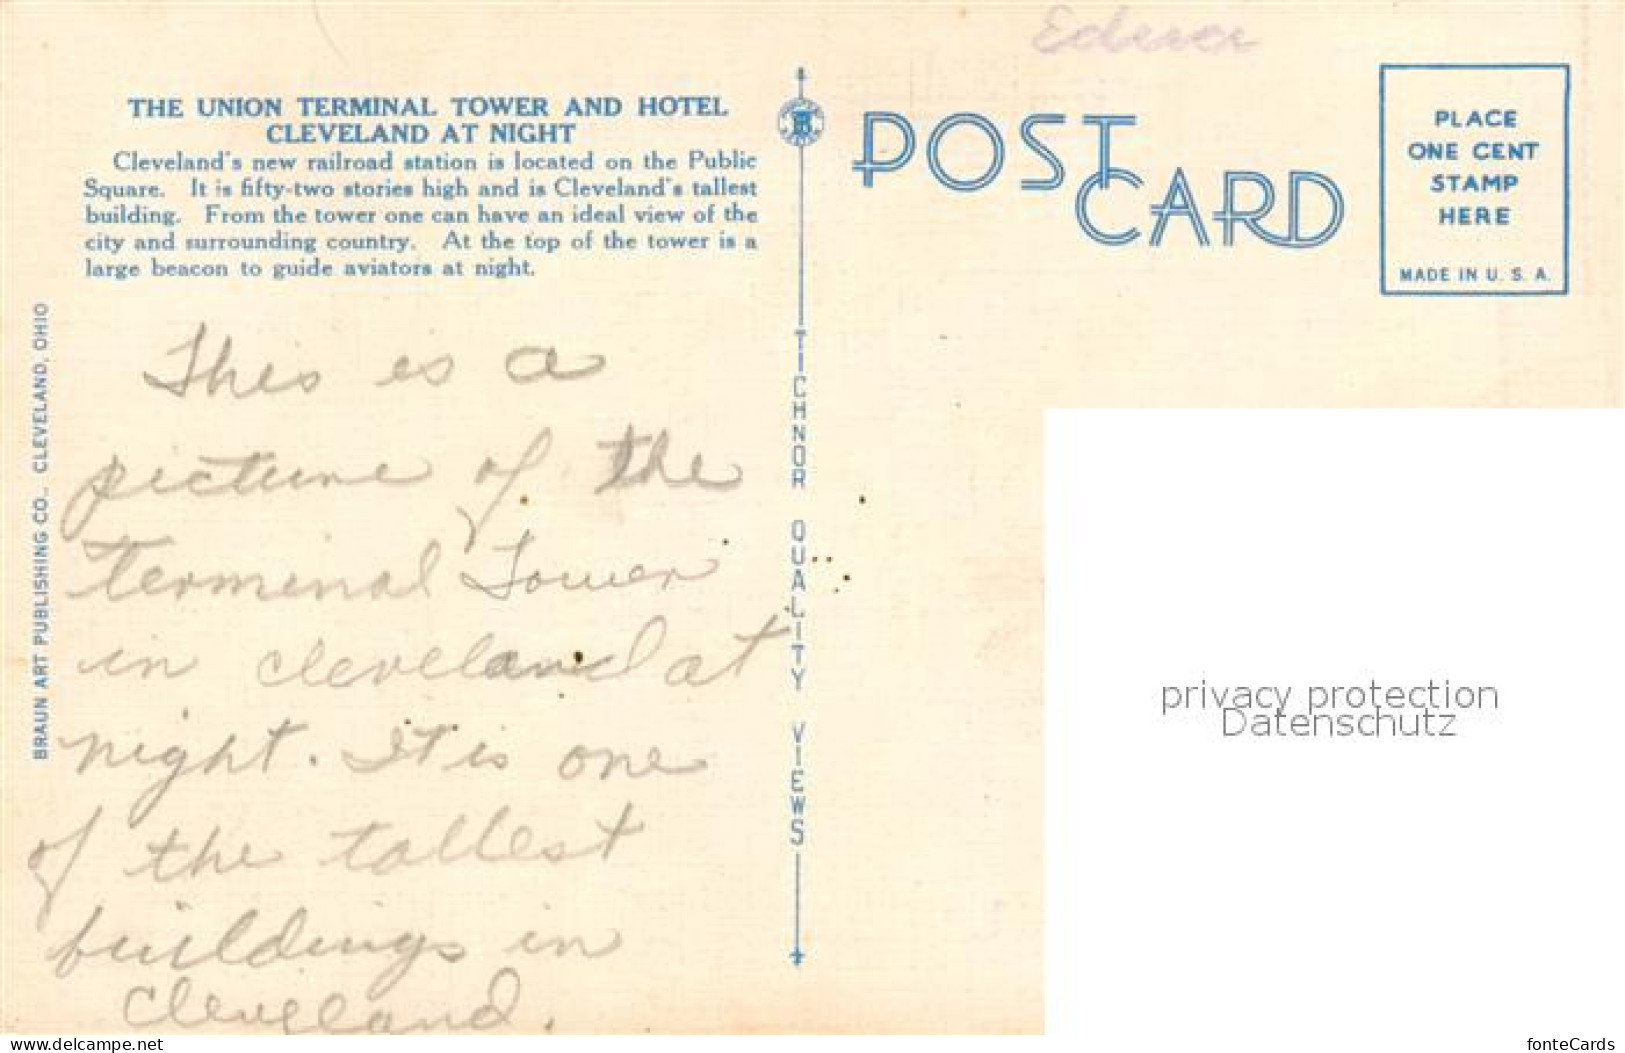 THE UNION TERMINAL TOWER AND HOTEL
CLEVELAND AT NIGHT
Cleveland's new railroad station is located on the Public
Square. It is fifty-two stories high and is Cleveland's tallest
building. From the tower one can have an ideal view of the
city and surrounding country. At the top of the tower is a
large beacon to guide aviators at night.
This is a
picture of the
terminal Tower
in cleveland at
night. It is one
of the tallest
buildings in
Cleveland.
BRAUN ART PUBLISHING CO., CLEVELAND, OHIO
TICHNOR QUALITY VIEWS
POST
CARD
PLACE
ONE CENT
STAMP
HERE
MADE IN U. S. A.
privacy protection
Datenschutz
www.delcampe.net
fonteCards